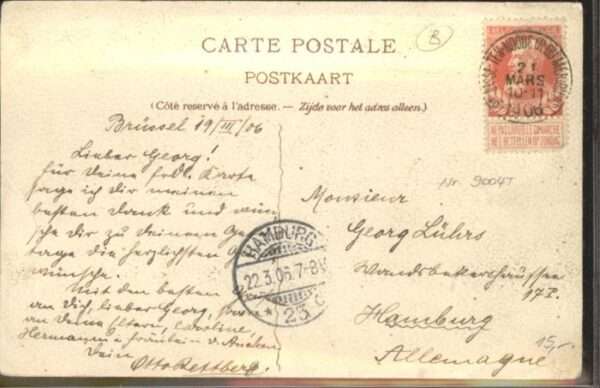 CARTE POSTALE
POSTKAART
(Côté reservé à l'adresse. — Zijde voor het adres alleen.)
Brüssel 19/III/06
Lieber Georg!
für Deine frdl. Karte
sage ich dir meinen
besten Dank und wün
sche Dir zu Deinem Ge
tage die herzlichsten
wünsche.
Mit den besten
an Dich, lieber Georg,
an Deine Eltern, Caroline,
Hermann u Fräulein
Dein
Otto Rettberg.
Monsieur
Georg Lührs
Wandsbekerchaussee
Hamburg
Allemagne
Nr. 9004T
15,-
B
21
MARS
10-11
1906
NE PAS LIVRER LE DIMANCHE
NIET BESTELLEN OP ZONDAG
HAMBURG
22.3.06.7-8V
* * 23 c